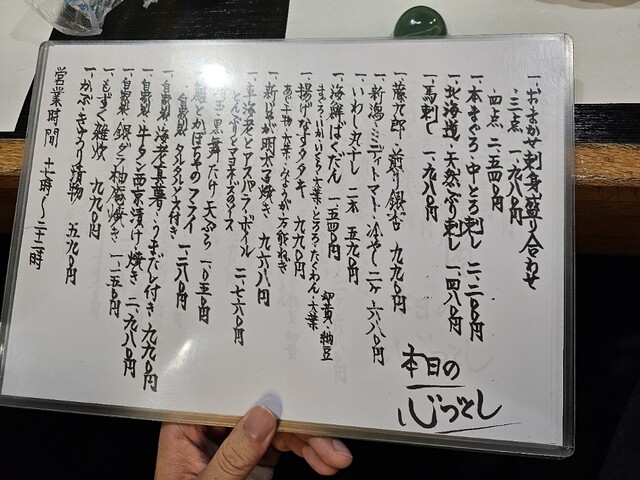 本日の
心づくし
一、おまかせ刺身盛り合わせ
三点 一、九八〇円
四点 二、五四〇円
一、本まぐろ・中とろ刺し 二、二〇〇円
一、北海道・天然ぶり刺し 一、四八〇円
一、馬刺し 一、九八〇円
一、藤九郎・煎り銀杏 九九〇円
一、新潟・ミディトマト・冷やし 二ヶ 六八〇円
一、いわし丸干し 二本 五九〇円
一、海鮮ばくだん 一、五四〇円
まぐろ・いか・いくら・大葉・とろろ・たくわん・大葉
卵黄・納豆
一、揚げなすタタキ 九九〇円
あさ干物・大葉・みょうが・万能ねぎ
一、新じゃが明太マヨ焼き 九六八円
一、車海老とアスパラ・ボイル 二、七六〇円
とんぶりとマヨネーズのソース
黒舞たけ天ぷら 一、〇五〇円
鮭とかぼちゃのフライ 一、二八〇円
自家製タルタルソース付き
一、自家製 海老真薯・うまだし付き 九九〇円
一、自家製 牛タン西京漬け焼き 二、九八〇円
一、自家製 銀ダラ柚庵焼き 一、一五〇円
一、もずく雑炊 九九〇円
一、かぶ・きゅうり漬物 五九〇円
営業時間 十七時〜二十二時